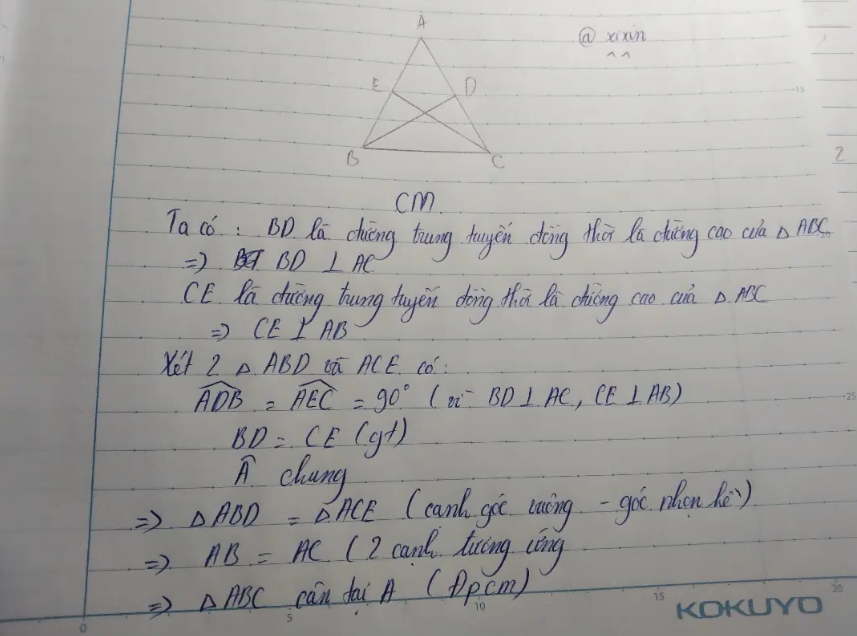 A
@ xixin
^^
E
D
B
C
2
CM
Ta có : BD là đường trung tuyến đồng thời là đường cao của △ ABC
=> BD ⊥ AC
CE là đường trung tuyến đồng thời là đường cao của △ ABC
=> CE ⊥ AB
Xét 2 △ ABD và ACE có:
ADB = AEC = 90° ( vì BD ⊥ AC, CE ⊥ AB)
BD = CE (gt)
Â chung
=> △ ABD = △ ACE ( cạnh góc vuông - góc nhọn kề )
=> AB = AC ( 2 cạnh tương ứng
=> △ ABC cân tại A ( Đpcm)
0
5
10
15
20
15
25
KOKUYO